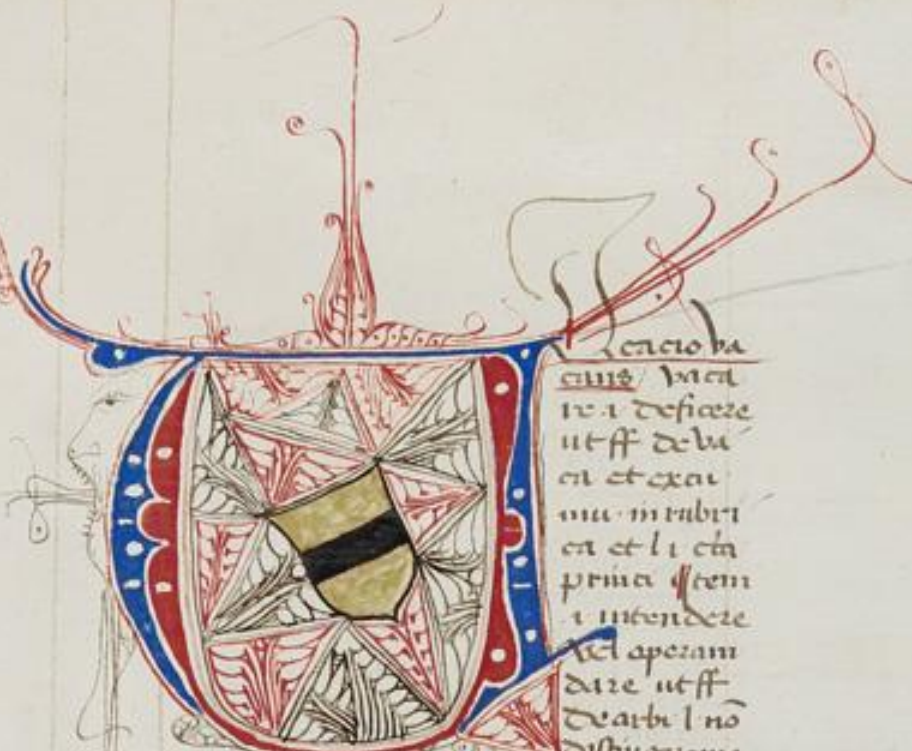 cacio va
caris vaca
re i deficere
ut ff de va
ca et excu
mu in rubri
ca et l i cta
prima ¶ Item
i intendere
vel operam
dare ut ff
de arbi l nō